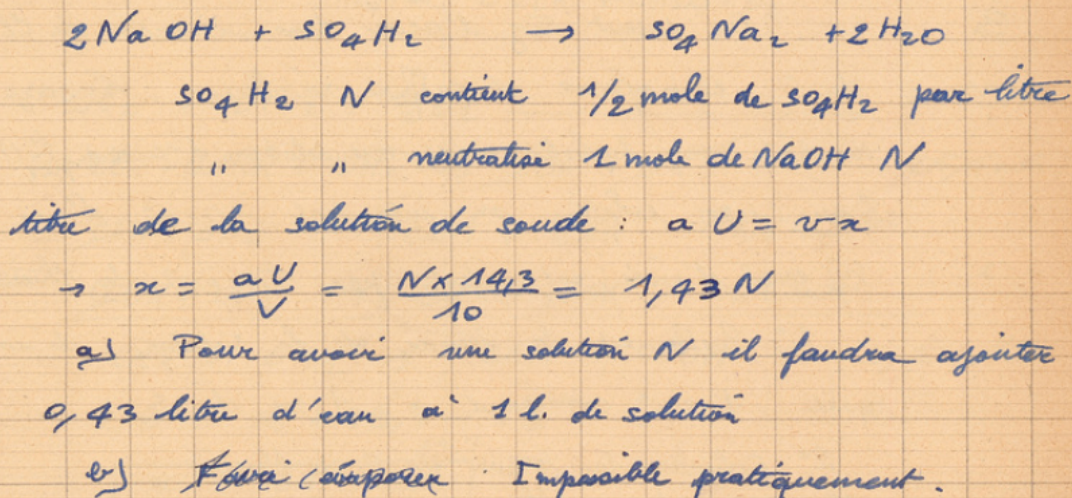 2NaOH + SO4H2 → SO4Na2 + 2H2O
SO4H2 N contient 1/2 mole de SO4H2 par litre
" " neutralise 1 mole de NaOH N
titre de la solution de soude : a U = v x
→ x = aU/V = N x 14,3/10 = 1,43 N
a) Pour avoir une solution N il faudra ajouter
0,43 litre d'eau à 1 l. de solution
b) Impossible pratiquement.